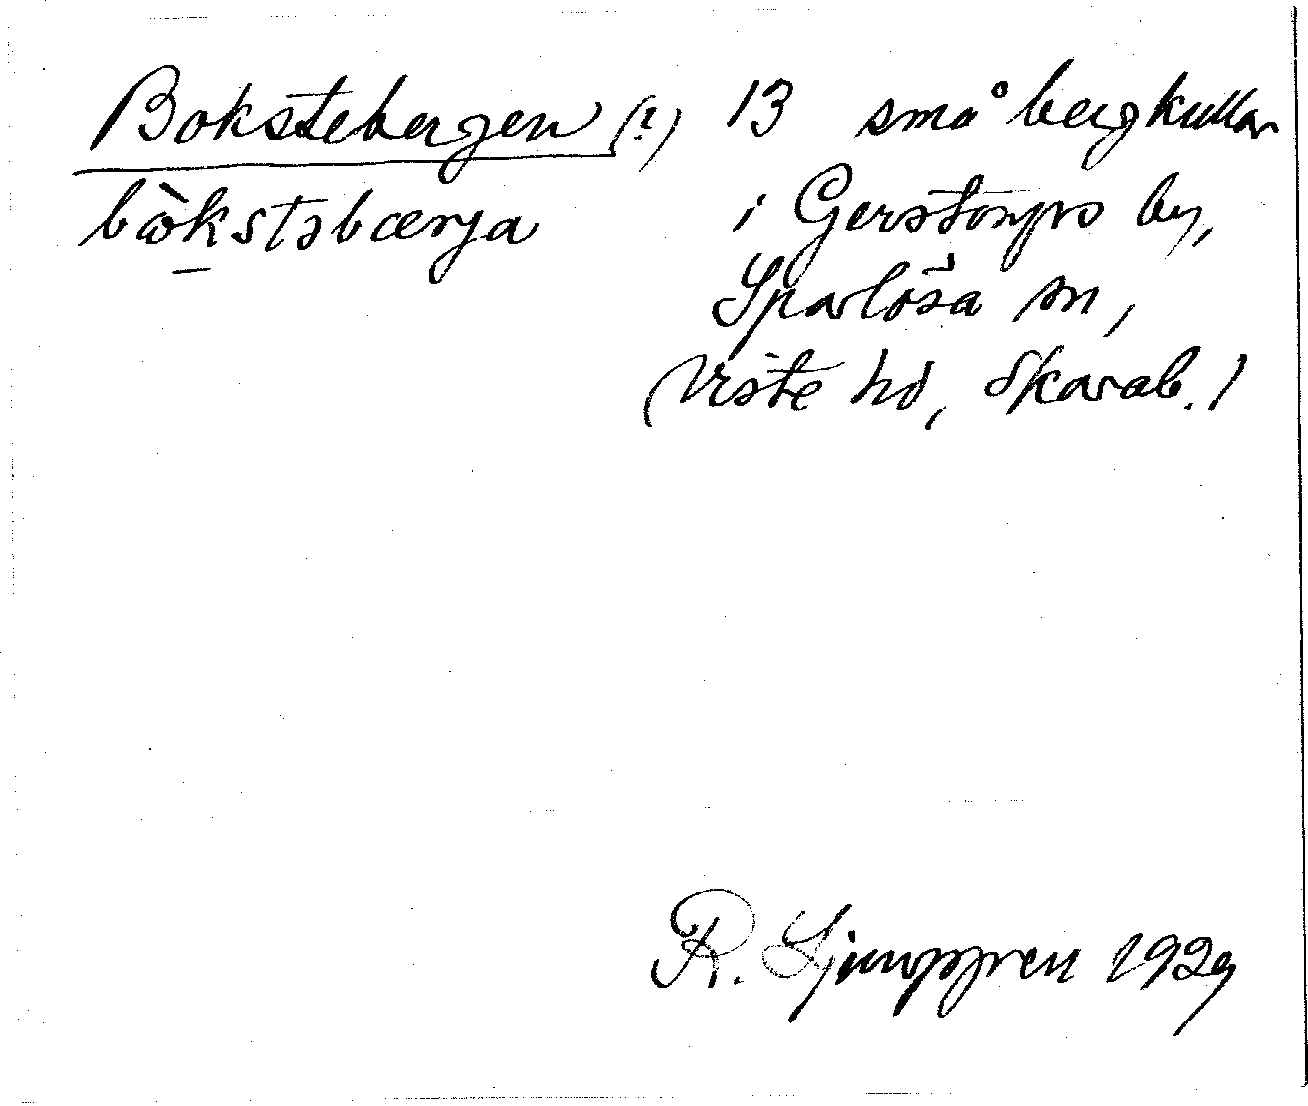 Bokstebergen (?) 13 små bergkullar
bòkstəbærja i Gerstorps by,
Sparlösa sn,
(Viste hd, Skarab.)
R. Ljunggren 1929